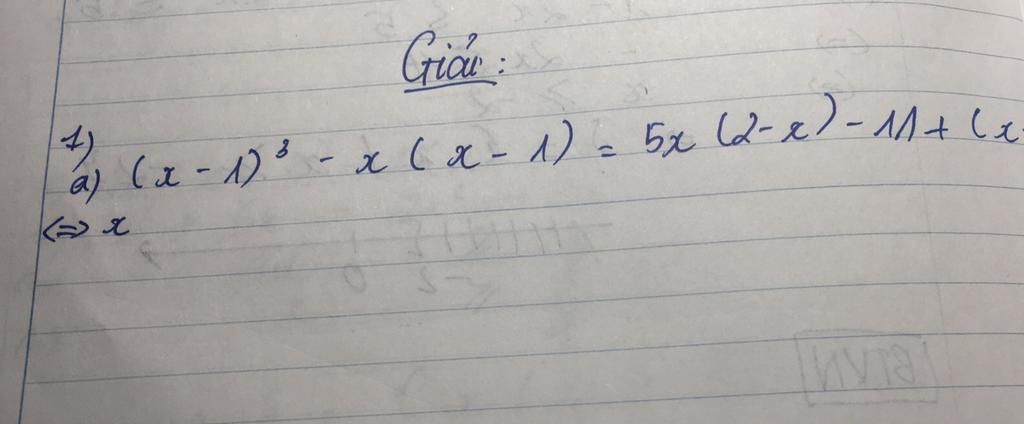 Giải:
1)
a) (x - 1)³ - x ( x - 1) = 5x (2-x) - 11 + (x
<=> x
BTVN